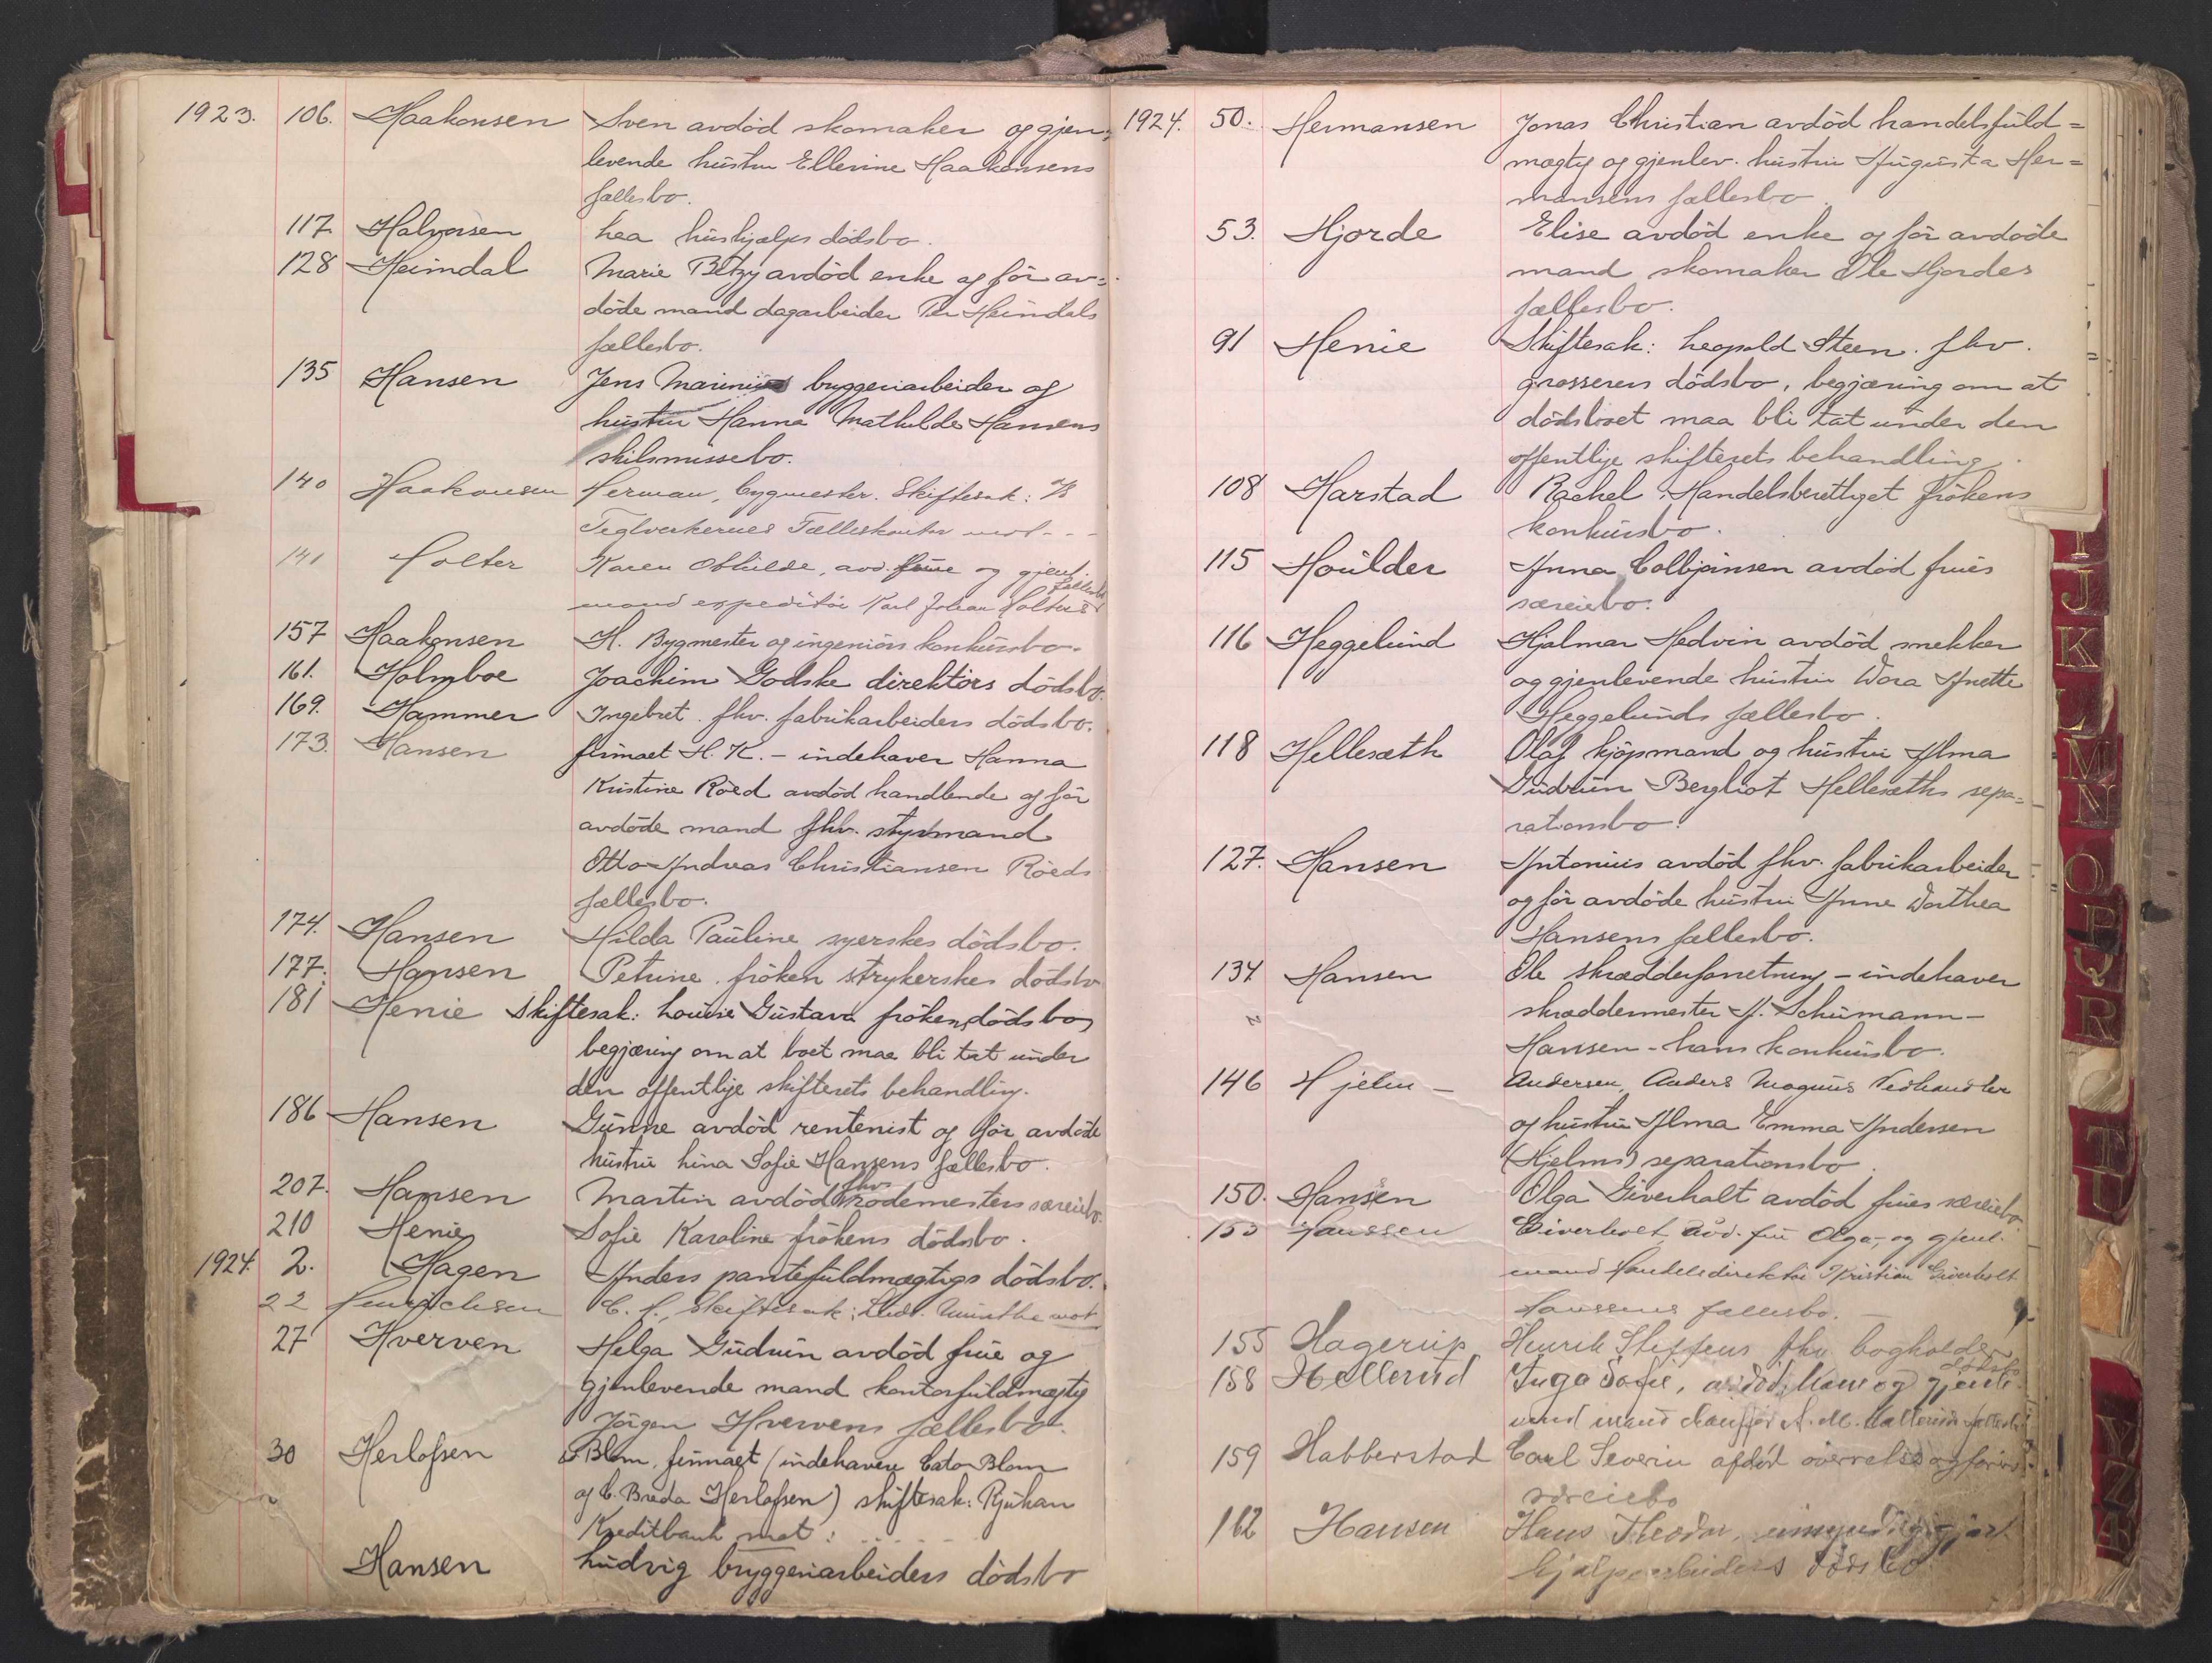 1923. 106. Haakonsen Sven avdöd skomaker og gjen-
levende hustru Ellevine Haakonsens
fællesbo.
117 Halvorsen Lea hushjælps dödsbo.
128 Heimdal Marie Betzy avdöd enke og för av=
döde mand dagarbeider Per Heimdals
fællesbo.
135 Hansen Jens Marinius bryggeriarbeider og
hustru Hanna Mathilde Hansens
skilsmissebo.
140 Haakonsen Herman, bygmester. Skiftesak: A/S
Teglverkernes Felleskontor mot - - -
141 Holter Karen Othilde, avd. frue og gjenl.
mand expeditör Karl Johan Holters fællesbo
157 Haakonsen H. Bygmester og ingeniörs konkursbo.
161. Holmboe Joachim Godske direktörs dödsbo.
169. Hammer Ingebret. fhv. fabrikarbeiders dödsbo.
173. Hansen firmaet H. K. - indehaver Hanna
Kristine Röed avdöd handlende og för
avdöde mand fhv. styrmand
Otto Andreas Christiansen Röeds
fællesbo.
174. Hansen Hilda Pauline syerskes dödsbo.
177. Hansen Petrine. fröken strykerskes dödsbo
181 Henie Skiftesak: Louise Gustava frökens dödsbo,
begjæring om at boet maa bli tat under
den offentlige skifterets behandling.
186 Hansen Gunne avdöd rentenist og för avdöde
hustru Lina Sofie Hansens fællesbo.
207. Hansen Martin avdöd fhv rodemesters særeiebo.
210 Henie Sofie Karoline frökens dödsbo.
1924. 2. Hagen Anders pantefuldmægtigs dödsbo.
22 Henrichsen C. H., Skiftesak: Ludv. Munthe mot
27 Hverven Helga Gudrun avdöd frue og
gjenlevende mand kontorfuldmægtig
Jörgen Hvervens fællesbo.
30 Herlofsen & Blom, firmaet (indehavere Cato Blom
og C. Breda Herlofsen) skiftesak: Rjukan
Kreditbank mot: . . . . .
Hansen Ludvig bryggeriarbeiders dödsbo
1924. 50. Hermansen Jonas Christian avdöd handelsfuld=
mægtig og gjenlev. hustru Augusta Her=
mansens fællesbo.
53. Hjorde Elise avdöd enke og för avdöde
mand skomaker Ole Hjordes
fællesbo.
91 Henie Skiftesak: Leopold Steen. fhv.
grosserers dödsbo, begjæring om at
dödsboet maa bli tat under den
offentlige skifterets behandling.
108 Harstad Rachel. Handelsberettiget frökens
konkursbo.
115 Houlder Anna Colbjönsen avdöd frues
særeiebo.
116 Heggelund Hjalmar Hedvin avdöd snekker
og gjenlevende hustru Dora Anette
Heggelunds fællesbo.
118 Hellesæth Olaf kjöpmand og hustru Alma
Gudrun Bergliot Hellesæths sepa=
rationsbo.
127. Hansen Antonius avdöd fhv. fabrikarbeider
og för avdöde hustru Anne Dorthea
Hansens fællesbo.
134 Hansen Ole skrædderforretning - indehaver
skræddermester A. Schumann-
Hansen - hans konkursbo.
146 Hjelm - Andersen, Anders Magnus Vedhandler
og hustru Alma Emma Andersen
(Hjelms) separationsbo.
150. Hansen Olga Giverhalt avdöd frues særeiebo.
153 Hanssen Giverholt, avd. frue Olga, og gjenl.
mand Handelsdirektör Kristian Giverholt
Hanssens fællesbo.
155 Hagerup Henrik Steffens fhv bogholders
dödsbo
158 Hellerud Inga Sofie, avdöd, kone og gjenl.
mand chauffør A. M. Helleruds fællesbo
159 Habberstad Carl Severin afdöd overrelsesagförers
særeiebo
162 Hansen Hans Theodor, umyndiggjort
hjelpearbeiders dödsbo
I
J
K
L
M
N
O
P
Q
R
T
U